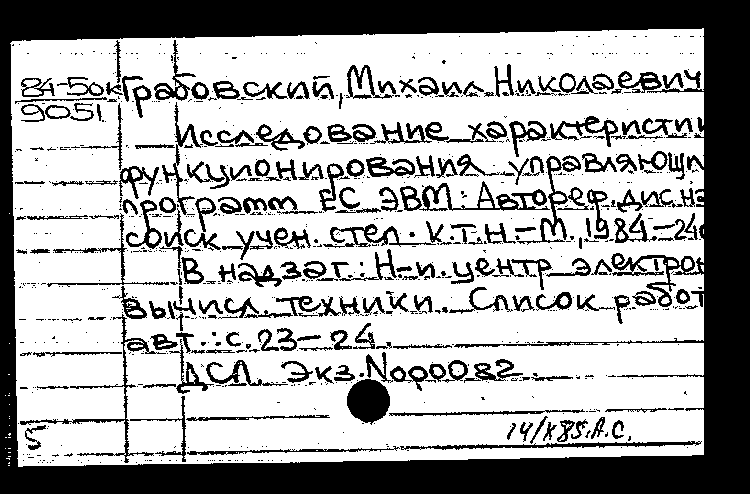 84-5ок Грабовский, Михаил Николаевич
9051
Исследование характеристи
функционирования управляющи
программ ЕС ЭВМ: Автореф. дис. на
соиск учен. степ. к.т.н. – М., 1984. – 24с
В надзаг.: Н-и. центр электрон
вычисл. техники. Список работ
авт.: с. 23 – 24.
ДСП. Экз. N000082.
5
14/X 85. А.С.